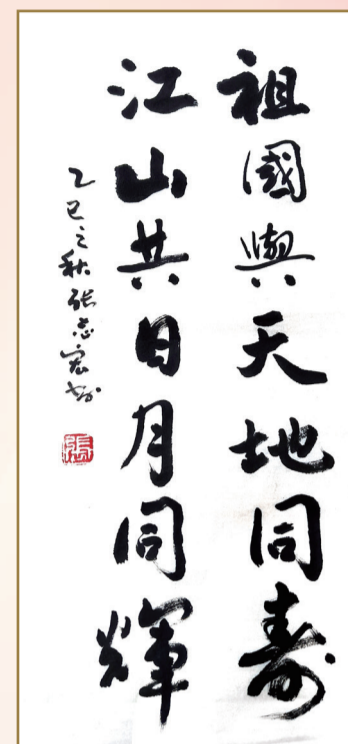 祖國與天地同壽
江山共日月同輝
乙巳之秋張志宏書
張